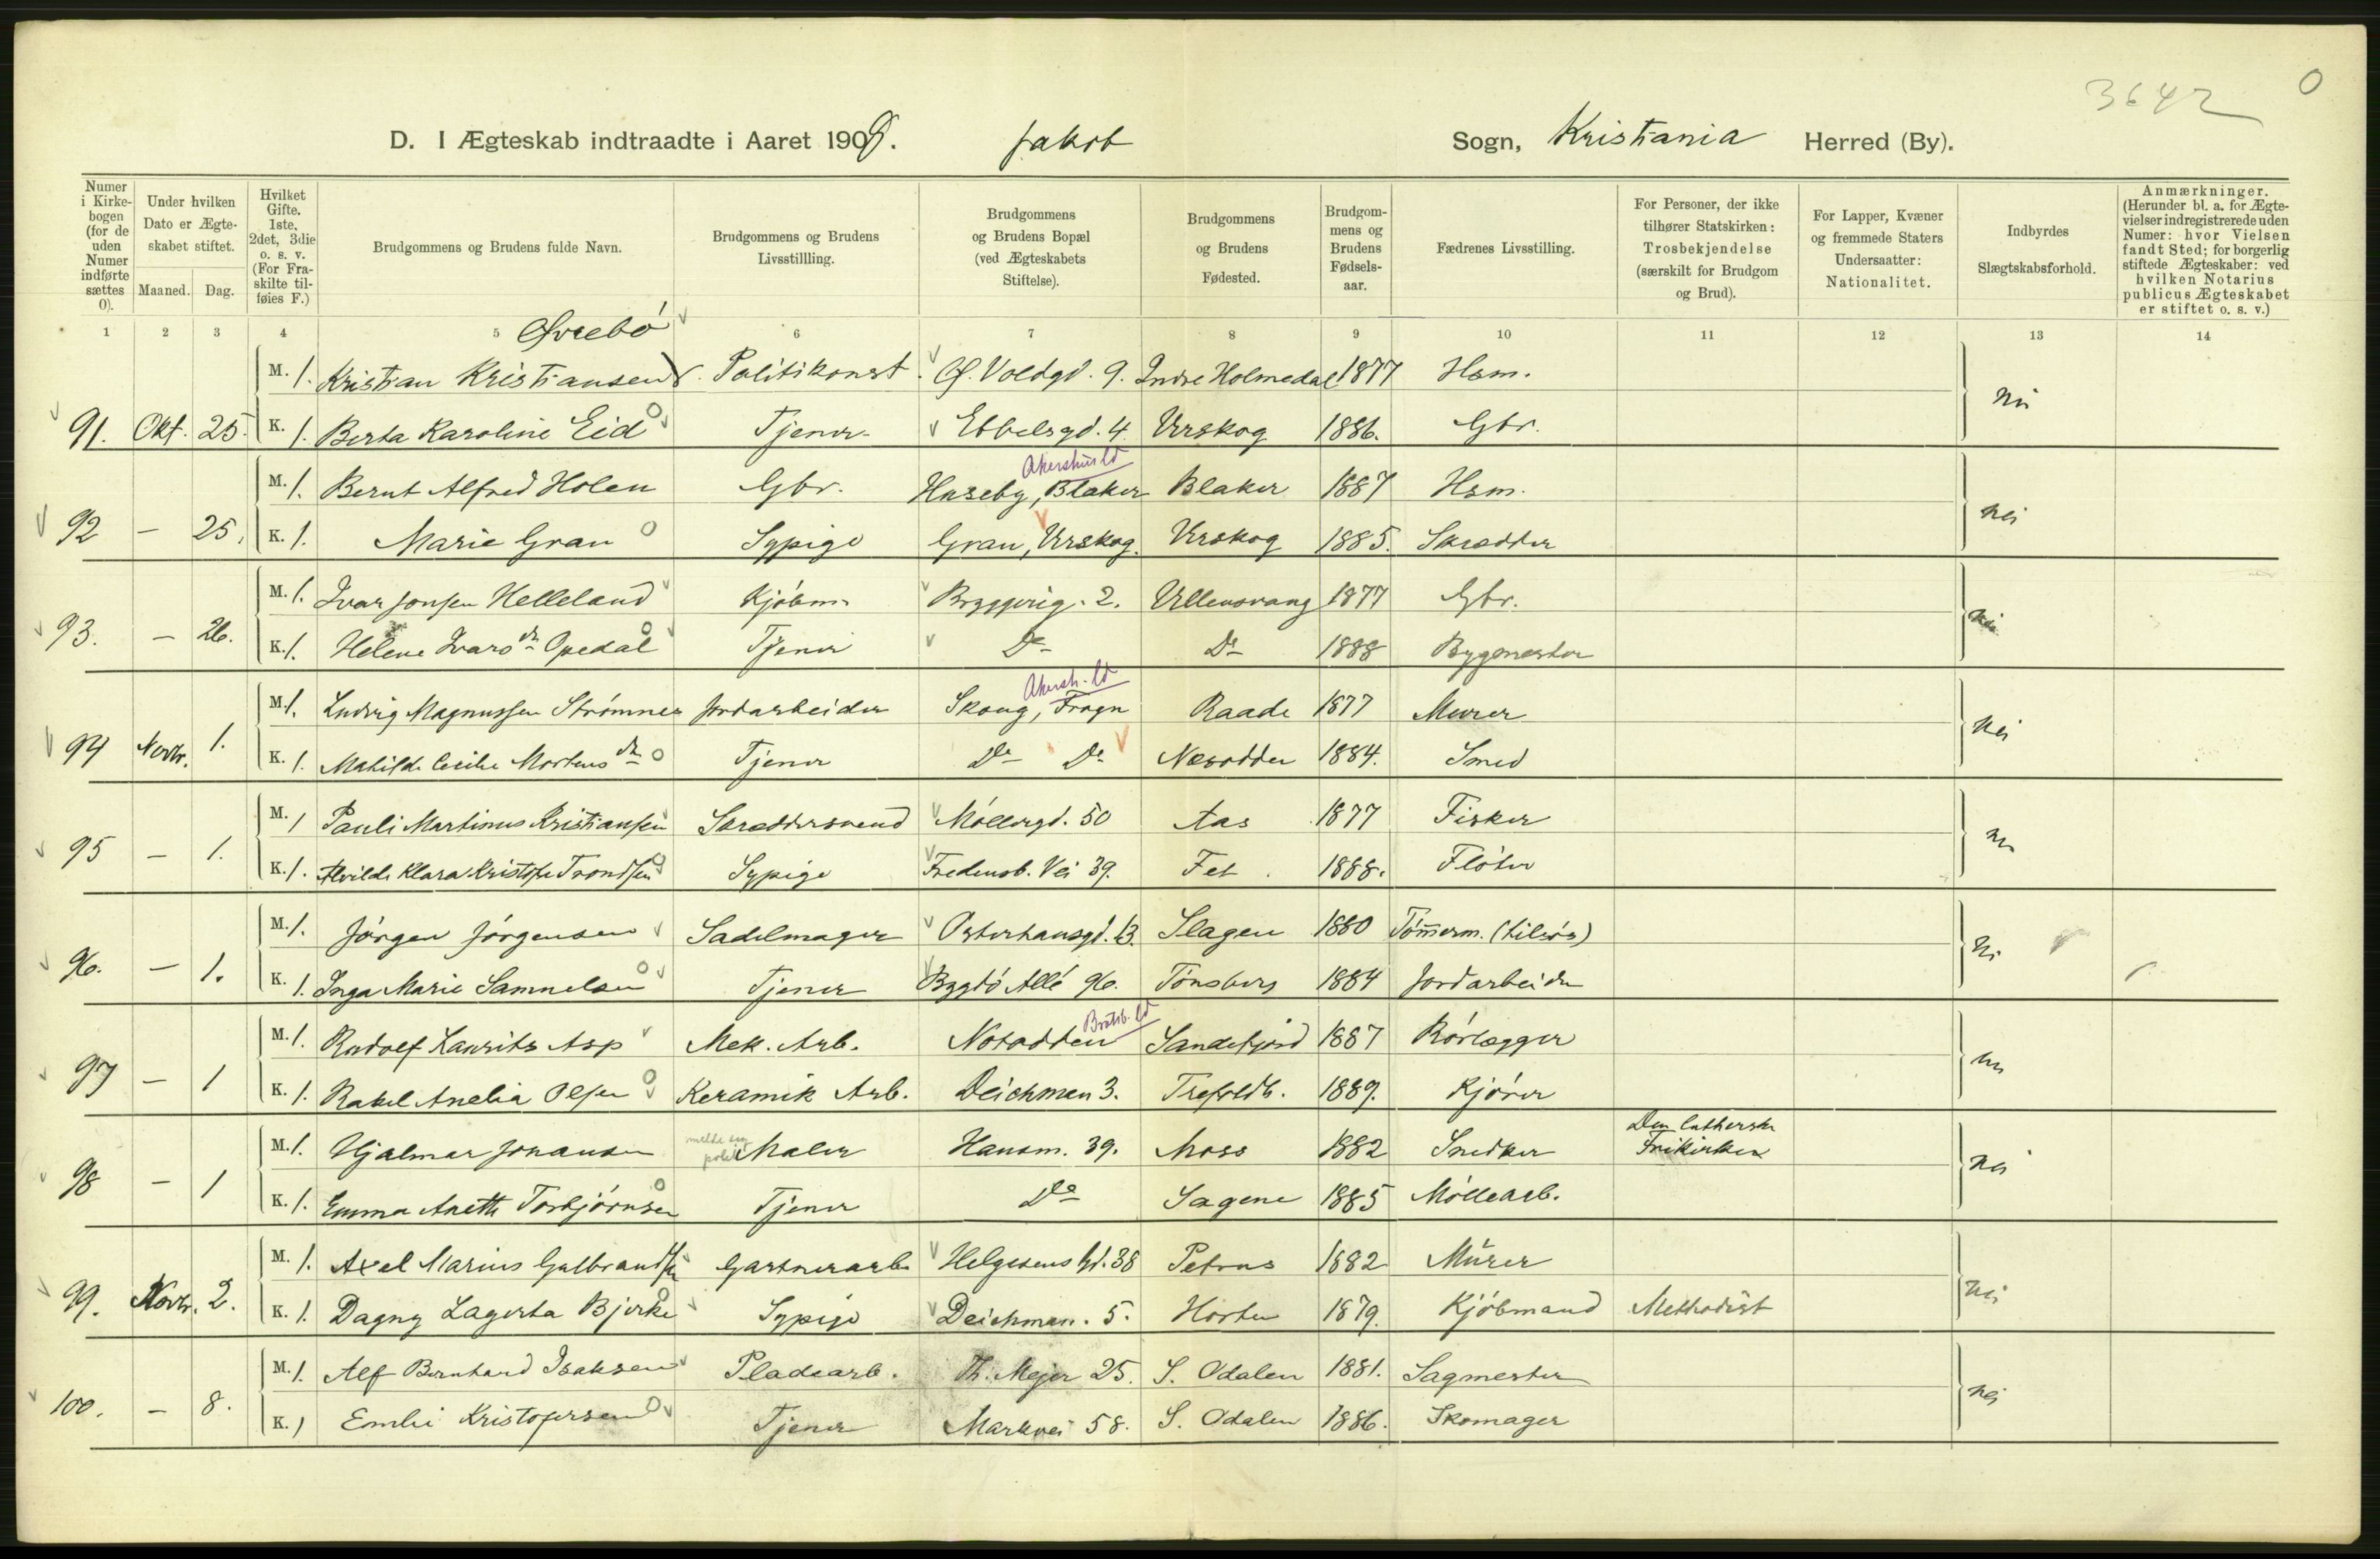 3642 0
D. I Ægteskab indtraadte i Aaret 1908. Jakob Sogn, Kristiania Herred (By).
Numer i Kirkebogen (for de uden Numer indførte sættes 0). Under hvilken Dato er Ægteskabet stiftet. Maaned. Dag. Hvilket Gifte. 1ste, 2det, 3die o. s. v. (For Fraskilte tilføies F.) Brudgommens og Brudens fulde Navn. Brudgommens og Brudens Livsstillling. Brudgommens og Brudens Bopæl (ved Ægteskabets Stiftelse). Brudgommens og Brudens Fødested. Brudgommens og Brudens Fødselsaar. Fædrenes Livsstilling. For Personer, der ikke tilhører Statskirken: Trosbekjendelse (særskilt for Brudgom og Brud). For Lapper, Kvæner og fremmede Staters Undersaatter: Nationalitet. Indbyrdes Slægtskabsforhold. Anmærkninger. (Herunder bl. a. for Ægtevielser indregistrerede uden Numer: hvor Vielsen fandt Sted; for borgerlig stiftede Ægteskaber: ved hvilken Notarius publicus Ægteskabet er stiftet o. s. v.)
1 2 3 4 5 6 7 8 9 10 11 12 13 14
Øvrebö
M. 1. Kristian Kristiansen Politikonst. Voldgd. 9. Indre Holmedal 1877 Hsm.
91. Okt. 25. K. 1. Berta Karoline Eid Tjener Ebbelsgd. 4 Urskog 1886. Gbr. nei
Akershus
M. 1. Bernt Alfred Holen Gbr. Huseby, Blaker Blaker 1887 Hsm.
92 — 25. K. 1. Marie Gran Sypige Gran, Urskog. Urskog 1885. Skrædder nei
M. 1. Ivar Jonsen Helleland Kjöbm. Bryggerig. 2. Ullensvang 1877 Gbr.
93. — 26. K. 1. Helene Ivarsdr Opedal Tjener Do Do 1888 Bygmester nei
Akersh.
M. 1. Ludvig Magnussen Strömnes Jordarbeider Skoug, Frogn Raade 1877 Murer
94 Novbr. 1. K. 1. Matilde Cecilie Mortensdr Tjener Do Do Nesodden 1884. Smed nei
M. 1 Pauli Martinus Kristiansen Skræddersvend Möllergd. 50 Aas 1877 Fisker
95 — 1. K. 1. Alvilde Klara Kristofa Trondsen Sypige Fredensb. Vei 39. Fet 1888. Flöter nei
M. 1. Jörgen Jörgensen Sadelmager Osterhausgd. 13. Slagen 1880 Tömmerm. (tilsös)
96. — 1. K. 1. Inga Marie Samuelsen Tjener Bygdö Allé 96. Tönsberg 1884 Jordarbeider nei
Bratsb.
M. 1. Rudolf Laurits Asp Mek. Arb. Notodden Sandefjord 1887 Rörlægger
97 — 1 K. 1. Rakel Anelia Olsen Keramik Arb. Deichman 3. Trefoldh. 1889. Kjörer nei
melde sig politi Den lutherske
M. 1. Hjalmar Johansen Maler Hausm. 39. Moss 1882 Snedker Frikirken
98 — 1 K. 1. Emma Anette Torbjörnsen Tjener Do Sagene 1885 Möllearb. nei
M. 1. Axel Marius Gulbrandsen Gartnerarb. Helgesens Gd. 38 Petrus 1882 Murer
99. Novbr. 2. K. 1. Dagny Lagerta Bjerke Sypige Deichman. 5. Horten 1879. Kjöbmand Methodist nei
M. 1. Alf Bernhard Isaksen Pladearb. Th. Mejer 25. S. Odalen 1881. Sagmester
100. — 8. K. 1 Emilie Kristofersen Tjener Markvei 58. S. Odalen 1886. Skomager nei